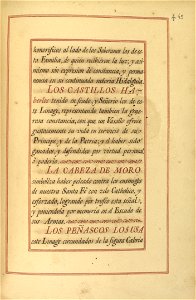 honorificos al lado de los Soberanos los de es-
ta Familia, de quien recibieron la luz, y asi
mismo son expresion de constancia, y perma
nencia en su continuada notoria Hidalguia.
LOS CASTILLOS HA-
berlos tenido en feudo, y Señorio los de es-
te Linage, representando tambien la gene-
rosa constancia, con que un Vasallo arries-
gustosamente su vida en servicio de su
Principe, y de la Patria; y el haber sido
ganados, y defendidos por virtud personal
ò poderio.
LA CABEZA DE MORO
simboliza haber peleado contra los enemigos
de nuestra Santa Fé con zelo Catholico, y
esforzado, logrando por trofeo esta señal,
y poniendola por memoria en el Escudo de
sus Armas.
LOS PEÑASCOS LOS USA
este Linage coronandolos de la figura